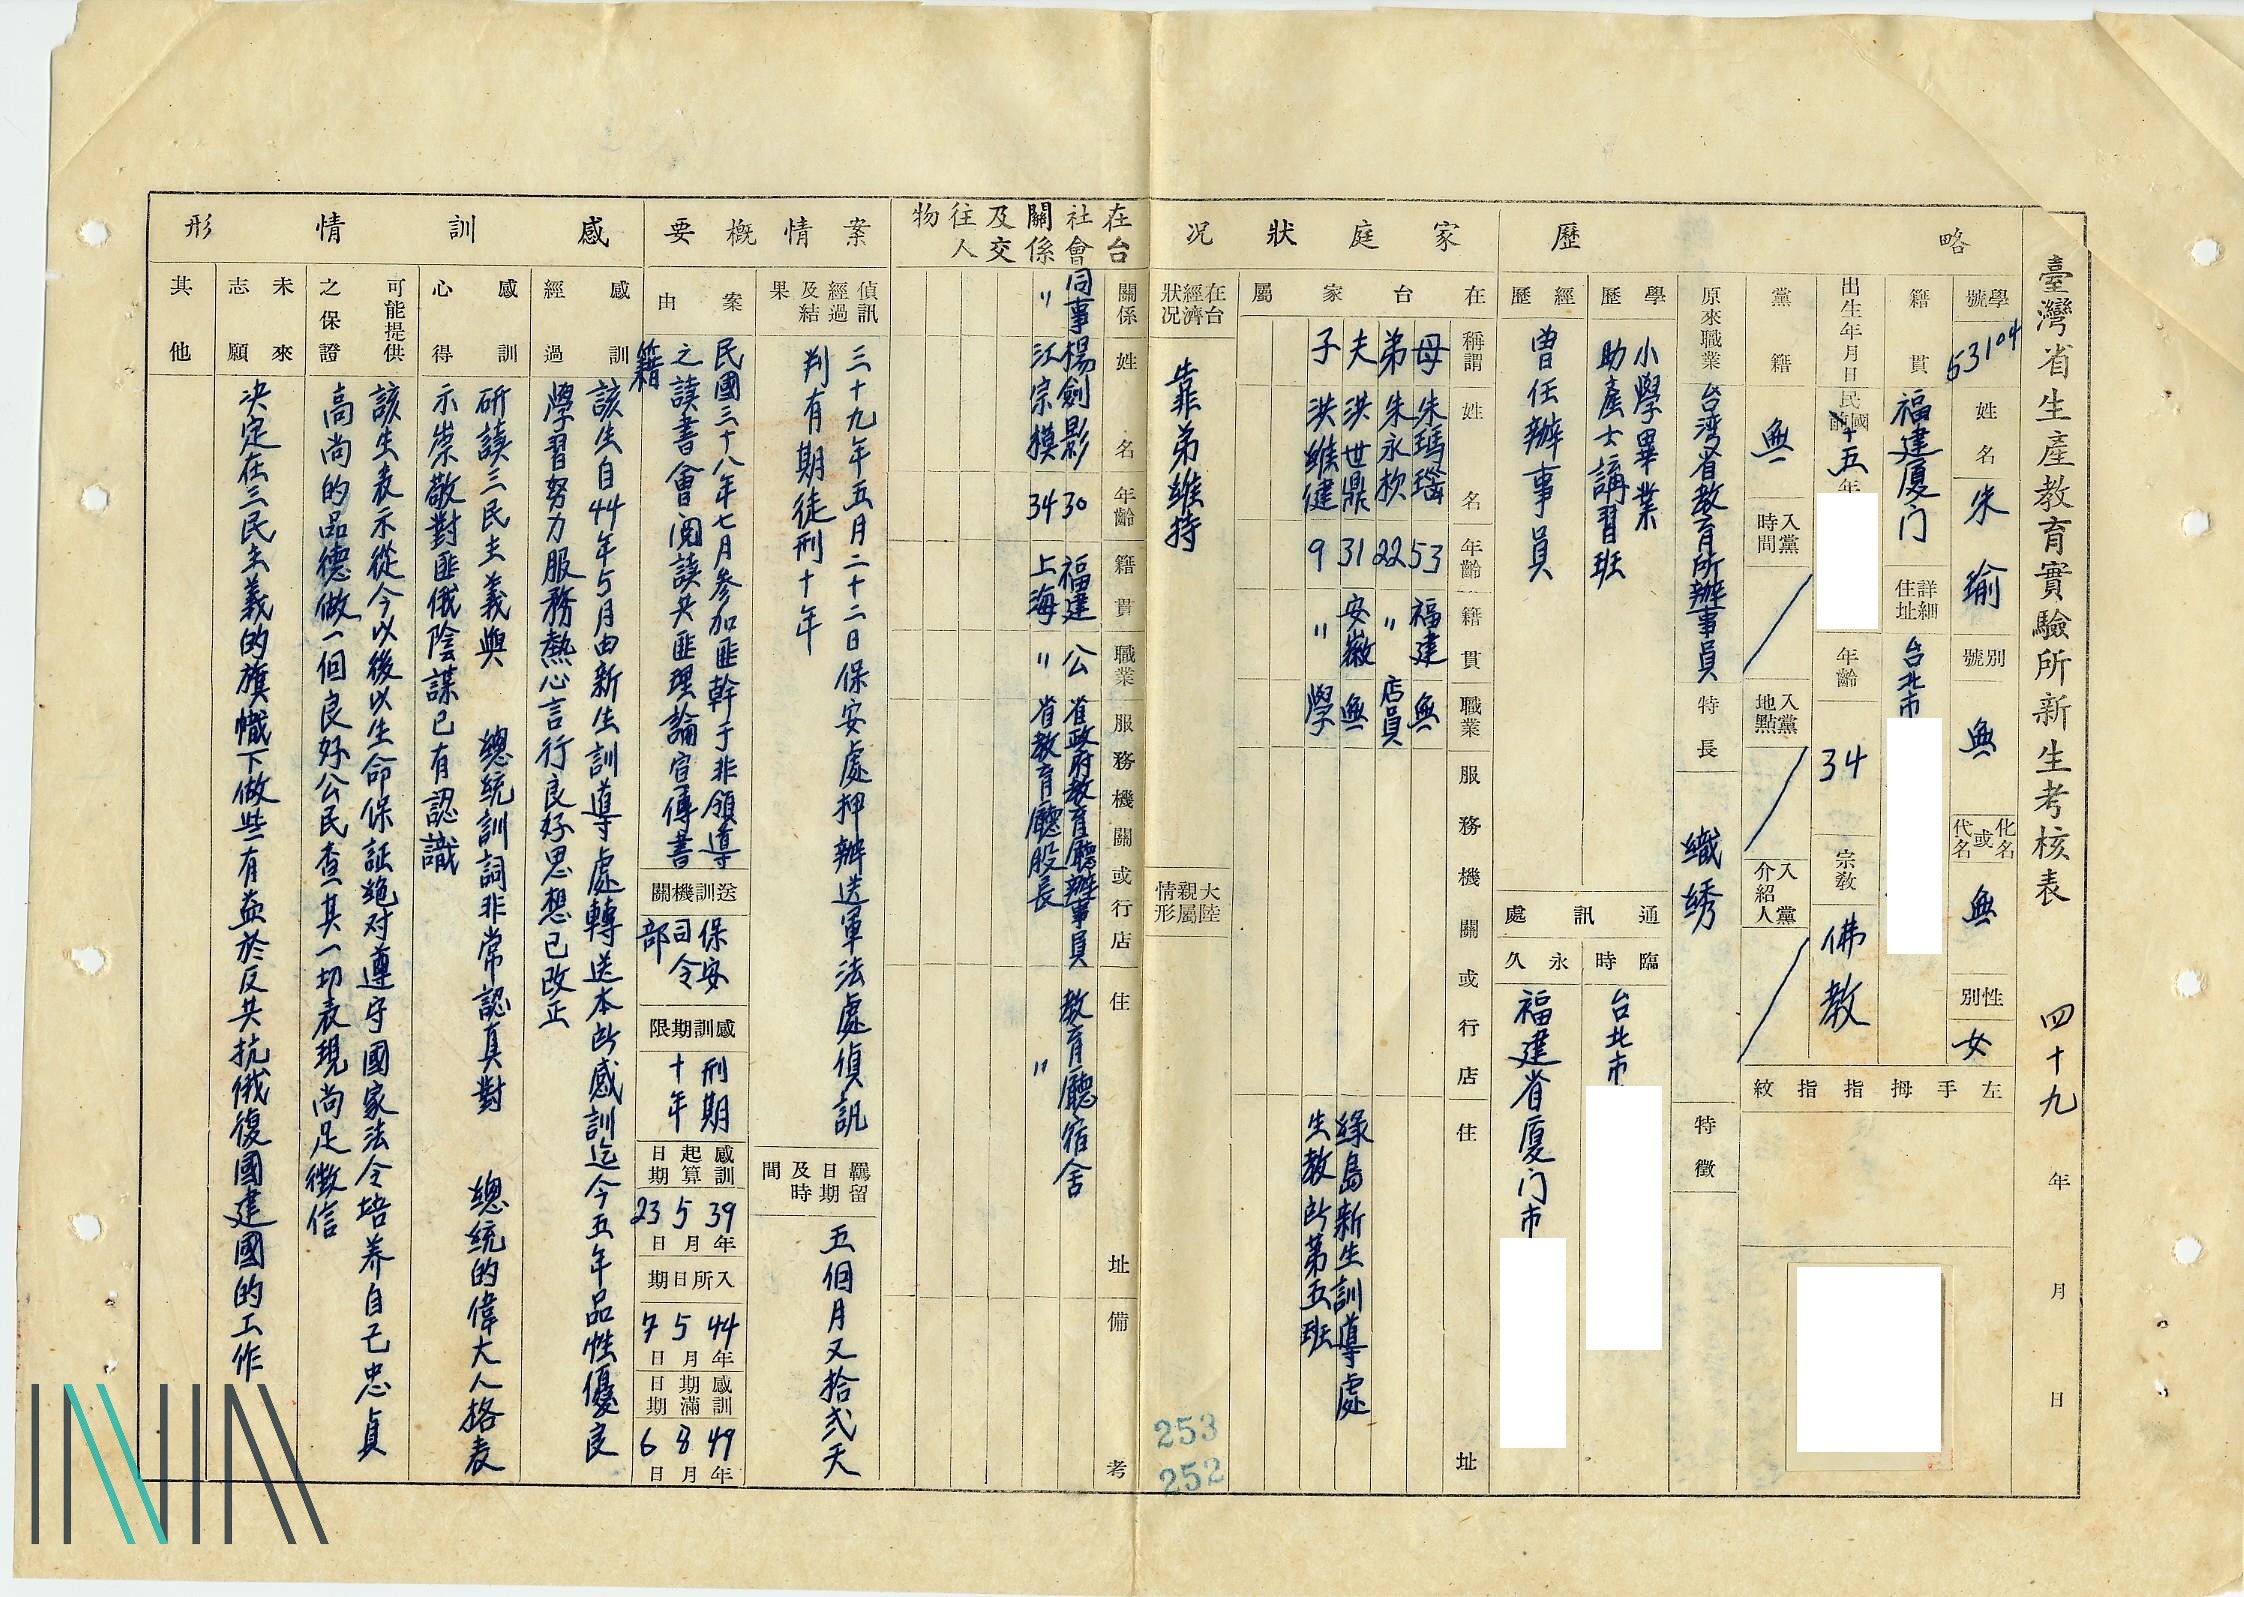 臺灣省生產教育實驗所新生考核表 四十九年 月 日
略歷
學號
53104
姓名
朱瑜
別號
無
化名或代名
無
性別
女
籍貫
福建厦门
詳細住址
台北市
出生年月日
民國前
十五年
年齡
34
宗教
佛教
黨籍
無
入黨時間
入黨地點
入黨介紹人
左手拇指指紋
原來職業
台湾省教育所辦事員
特長
織綉
特徵
學歷
小學畢業
助產士講習班
經歷
曾任辦事員
通訊處
臨時
台北市
永久
福建省厦门市
家庭狀况
在台家屬
稱謂 姓名 年齡 籍貫 職業 服務機關或行店 住址
母 朱瑪瑙 53 福建 無
弟 朱永欽 22 〃 店員
夫 洪世鼎 31 安徽 無 綠島新生訓導處
子 洪維健 9 〃 學 生教所第五班
在台經濟狀况
靠弟維持
大陸親屬情形
253
252
在台社會關係及交往人物
關係 姓名 年齡 籍貫 職業 服務機關或行店 住址 備考
同事 楊劍影 30 福建 公 省政府教育廳辦事員 教育廳宿舍
〃 江宗模 34 上海 〃 省教育廳股長 〃
案情概要
偵訊經過及結果
三十九年五月二十二日保安處押辦送軍法處偵訊
判有期徒刑十年
羈留日期及時間
五個月又拾弍天
案由
民國三十八年七月參加匪幹于非領導
之讀書會閱讀共匪理論宣傳書
籍
送訓機關
保安
司令
部
感訓期限
刑期
十年
感訓起算日期
39年
5月
23日
入所日期
44年
5月
7日
感訓期滿日期
49年
8月
6日
感訓情形
感訓經過
該生自44年5月由新生訓導處轉送本所感訓迄今五年品性優良
學習努力服務熱心言行良好思想已改正
感訓心得
研讀三民主義與 總統訓詞非常認真對 總統的偉大人格表
示崇敬對匪俄陰謀已有認識
可能提供之保證
該生表示從今以後以生命保証絕对遵守國家法令培养自己忠貞
高尚的品德做一個良好公民查其一切表現尚足徵信
未來志願
決定在三民主義的旗幟下做些有益於反共抗俄復國建國的工作
其他